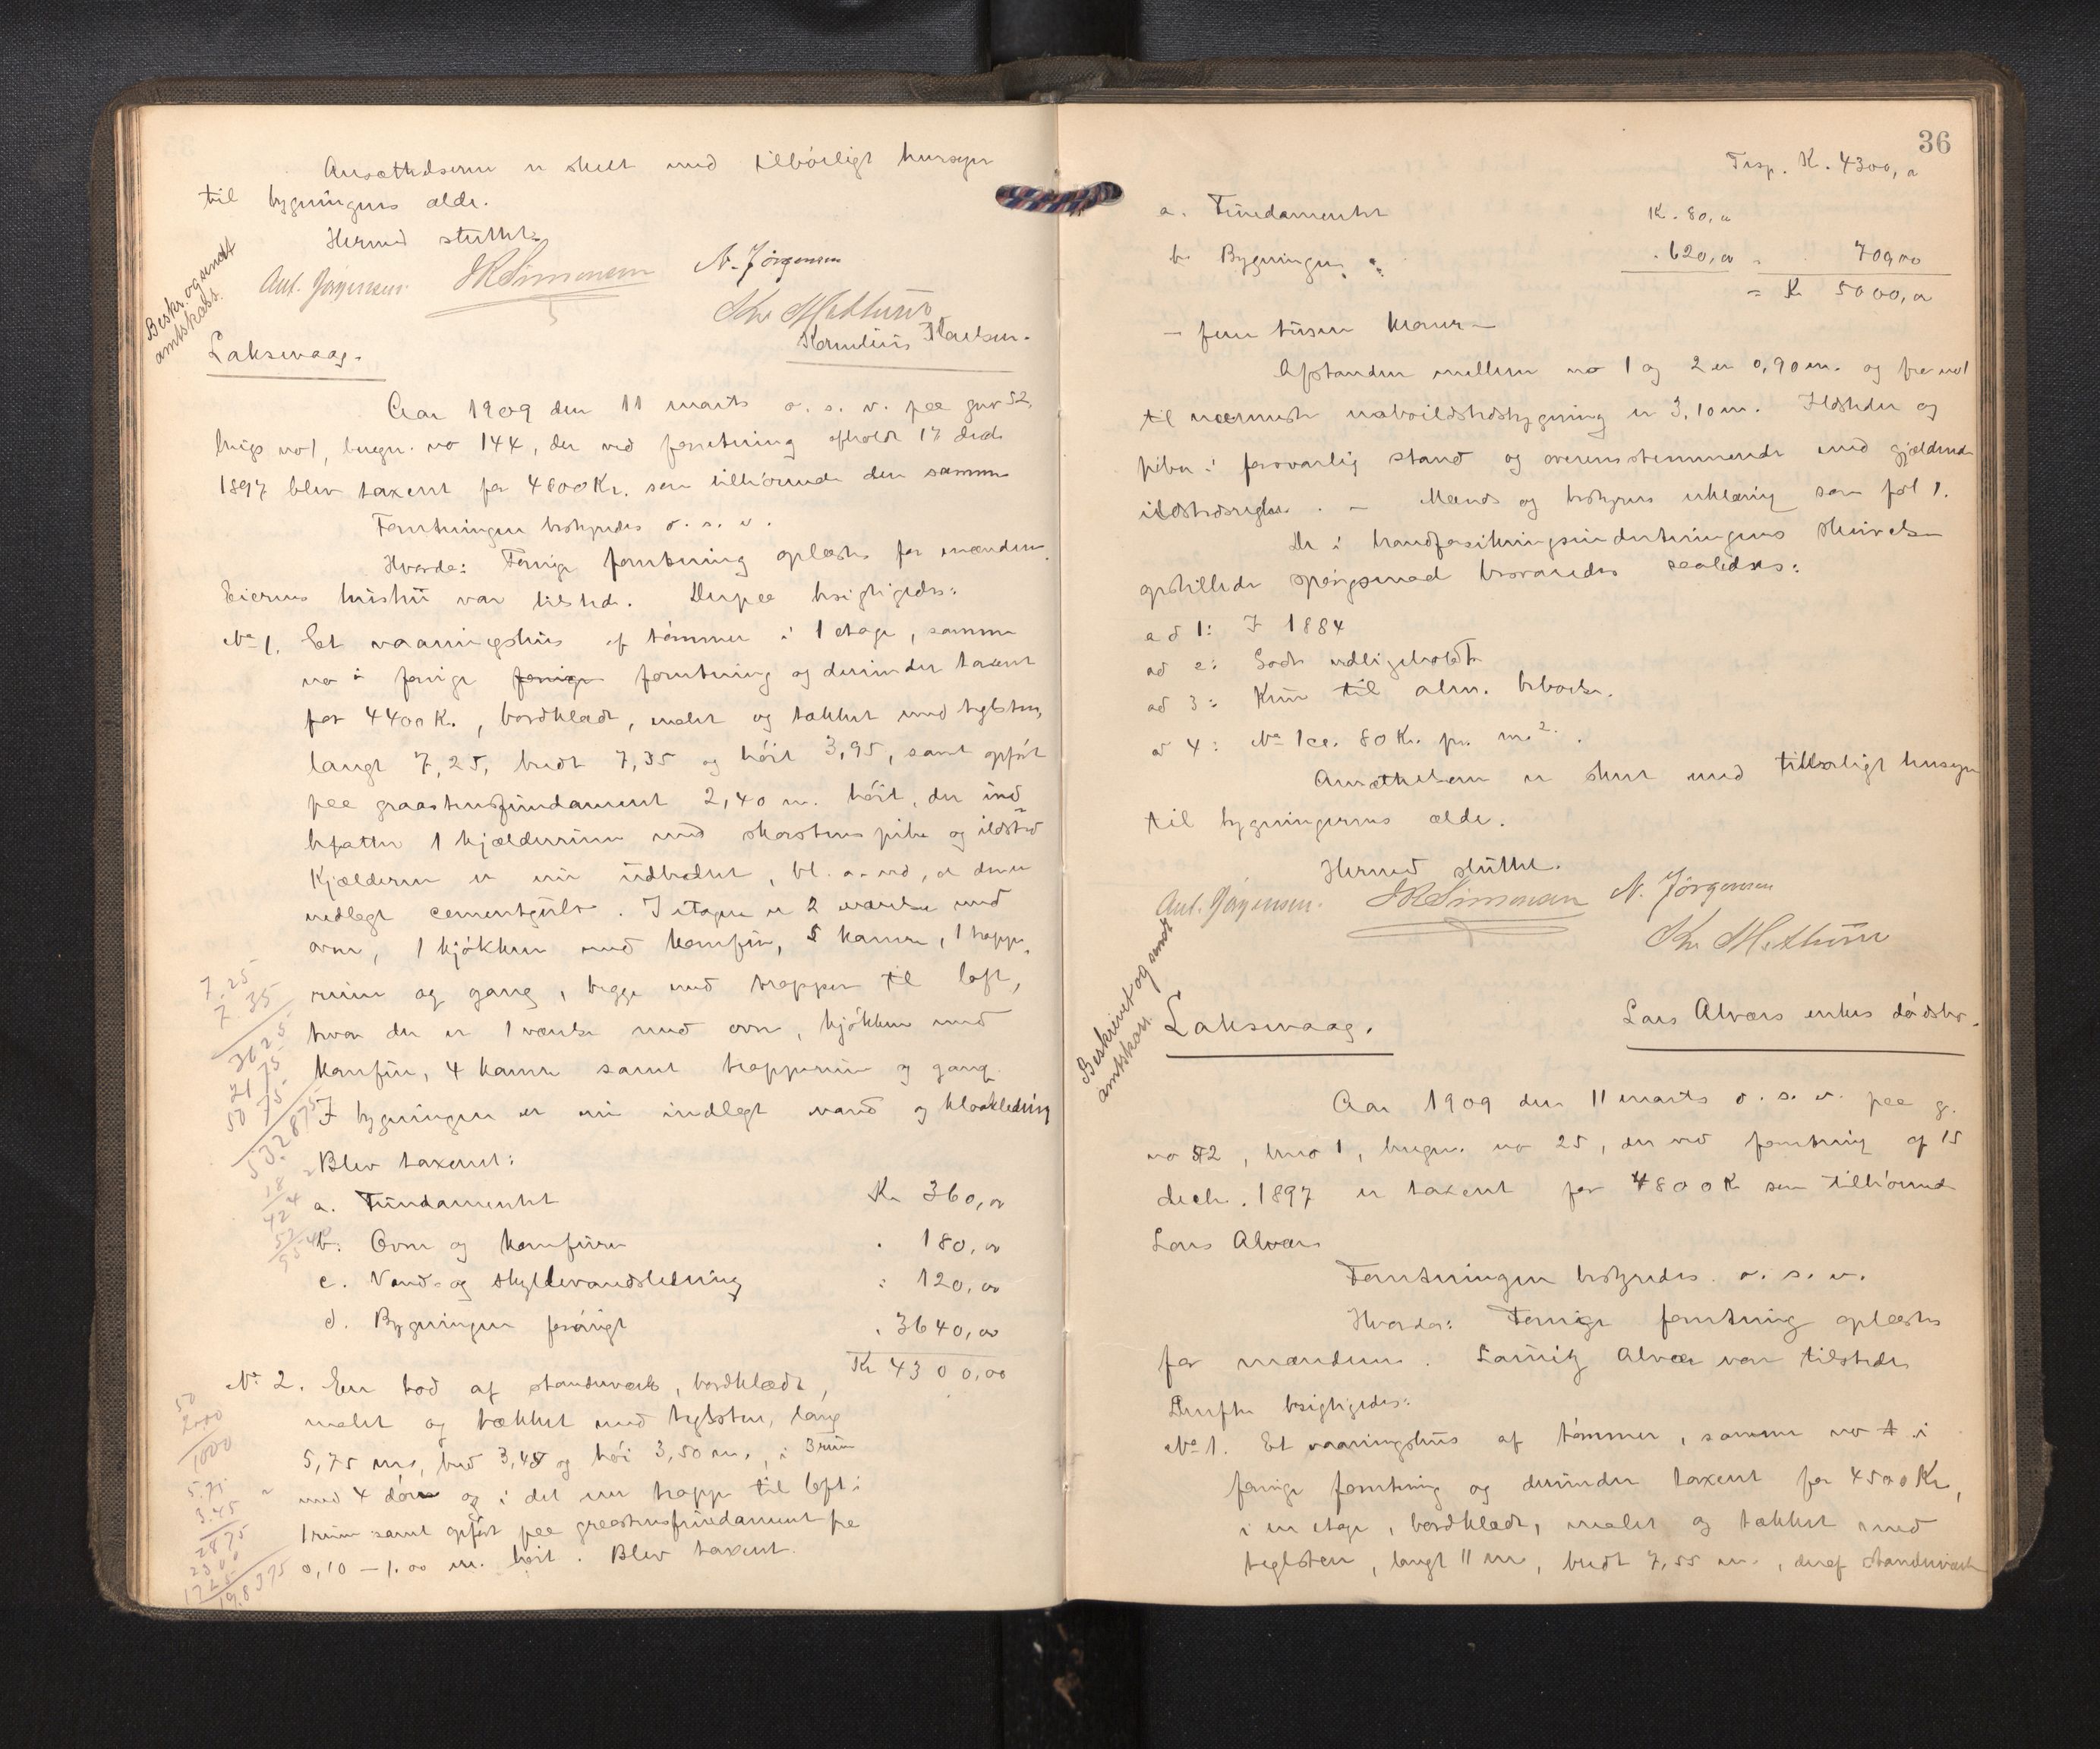 Ansættelserne er skeet med tilbörligt hensyn
til bygningens alde.
Hermed sluttet.
Ant. Jörgensen. N. Jörgensen
Beskr. og sendt
amtskass.
Laksevaag.
Kornelius
Aar 1909 den 11 marts o. s. v. paa gnr 52,
brugs no 1, bugn. no 144, der ved forretning afholdt 17 decb
1897 blev taxeret for 4800 Kr. som tilhörende den samme
Forretningen bestyredes o. s. v.
Hvorda: Forrige forretning oplæstes for mændene.
Eierens hustru var tilstede. Derpaa besigtigedes:
No 1. Et vaaningshus af tömmer i 1 etage, samme
no i forrige forrige forretning og derunder taxeret
for 4400 K., bordklædt, malet og tækket med teglsten,
langt 7,25, bredt 7,35 og höit 3,95, samt opfört
paa graastensfundament 2,40 m. höit, der ind
befatter 1 kjælderrum med skorstens pibe og ildsted
Kjælderen er nu udbedret, bl. a. ved, at den er
nedlagt cementgulv. I etagen er 2 værelser med
ovne, 1 kjökken med komfur, 5 kamre, 1 trappe-
rum og gang, begge med trapper til loft,
hvor der er 1 værelse med ovn, kjökken med
komfur, 4 kamre samt trapperum og gang.
I bygningen er nu indlagt vand og kloakledning
Blev taxeret:
a. Fundamentet Kr 360,00
b. Ovne og komfurer 180,00
c. Vand- og skyllevandsledning 120,00
d. Bygningen forövrigt 3640,00
Kr 4300,00
No 2. En bod af standværk, bordklædt,
malet og tækket med teglsten, lang
5,75 m., bred 3,45 og höi 3,50 m., i 3 rum
med 4 döre og i det ene trappe til loft i
1 rum samt opfört paa graastensfundament fra
0,10 – 1.00 m. höit. Blev taxeret.
7.25
7.35
3625
2175
5075
53.2875
50
20.00
1000
5.75
3.45
2875
2300
1725
19.8375
36
Trsp. K. 4300,00
a. Fundamentet K. 80,00
b. Bygningen 620,00 = 700,00
= K 5000,00
– fem tusen kroner –
Afstanden mellem no 1 og 2 er 0,90 m. og fra no 1
til nærmeste naboildstedsbygning er 3,10 m. Ildsteder og
piber i forsvarlig stand og overensstemmende med gjældende
ildstedsregler. – Mænds og bestyrers erklæring som fol 1.
De i brandforsikringsindretningens skrivelse
opstillede spörgsmaal besvaredes saaledes:
ad 1: I 1884
ad 2: Godt vedligeholdt
ad 3: Kun til alm. beboelse.
ad 4: No 1 ca. 80 Kr. pr. m2.
Ansættelsen er skeet med tilbörligt hensyn
til bygningernes ælde.
Hermed sluttet.
Ant. Jörgensen. N. Jörgensen
Beskrevet og sendt
amtskass.
Laksevaag. Lars Alværs enkes dödsbo.
Aar 1909 den 11 marts o. s. v. paa g.
no 52, bno 1, brugn. no 25, der ved forretning af 15
decbr. 1897 er taxeret for 4800 K som tilhörende
Lars Alvær
Forretningen bestyredes o. s. v.
Hvorda: Forrige forretning oplæstes
for mændene. Alvær var tilstede
Derefter besigtigedes:
No 1. Et vaaningshus af tömmer, samme no 1 i
forrige forretning og derunder taxeret for 4500 Kr,
i en etage, bordklædt, malet og tækket med
teglsten, langt 11 m, bredt 7,55 m., deraf standværk